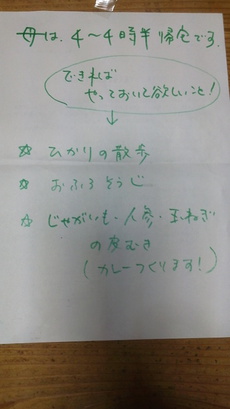 母は、4〜4時半帰宅です。
できれば
やっておいて欲しいこと！
↓
☆ ひかりの散歩
☆ おふろそうじ
☆ じゃがいも・人参・玉ねぎ
の皮むき
（カレーつくります！）